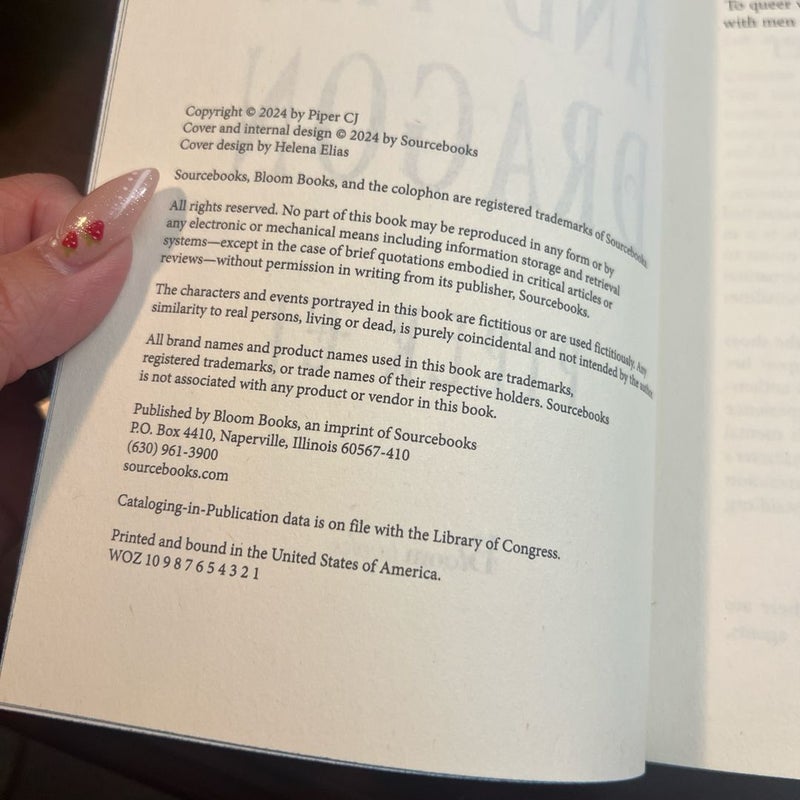 Copyright © 2024 by Piper CJ
Cover and internal design © 2024 by Sourcebooks
Cover design by Helena Elias
Sourcebooks, Bloom Books, and the colophon are registered trademarks of Sourcebooks.
All rights reserved. No part of this book may be reproduced in any form or by
any electronic or mechanical means including information storage and retrieval
systems—except in the case of brief quotations embodied in critical articles or
reviews—without permission in writing from its publisher, Sourcebooks.
The characters and events portrayed in this book are fictitious or are used fictitiously. Any
similarity to real persons, living or dead, is purely coincidental and not intended by the author.
All brand names and product names used in this book are trademarks,
registered trademarks, or trade names of their respective holders. Sourcebooks
is not associated with any product or vendor in this book.
Published by Bloom Books, an imprint of Sourcebooks
P.O. Box 4410, Naperville, Illinois 60567-410
(630) 961-3900
sourcebooks.com
Cataloging-in-Publication data is on file with the Library of Congress.
Printed and bound in the United States of America.
WOZ 10 9 8 7 6 5 4 3 2 1
To queer
with men